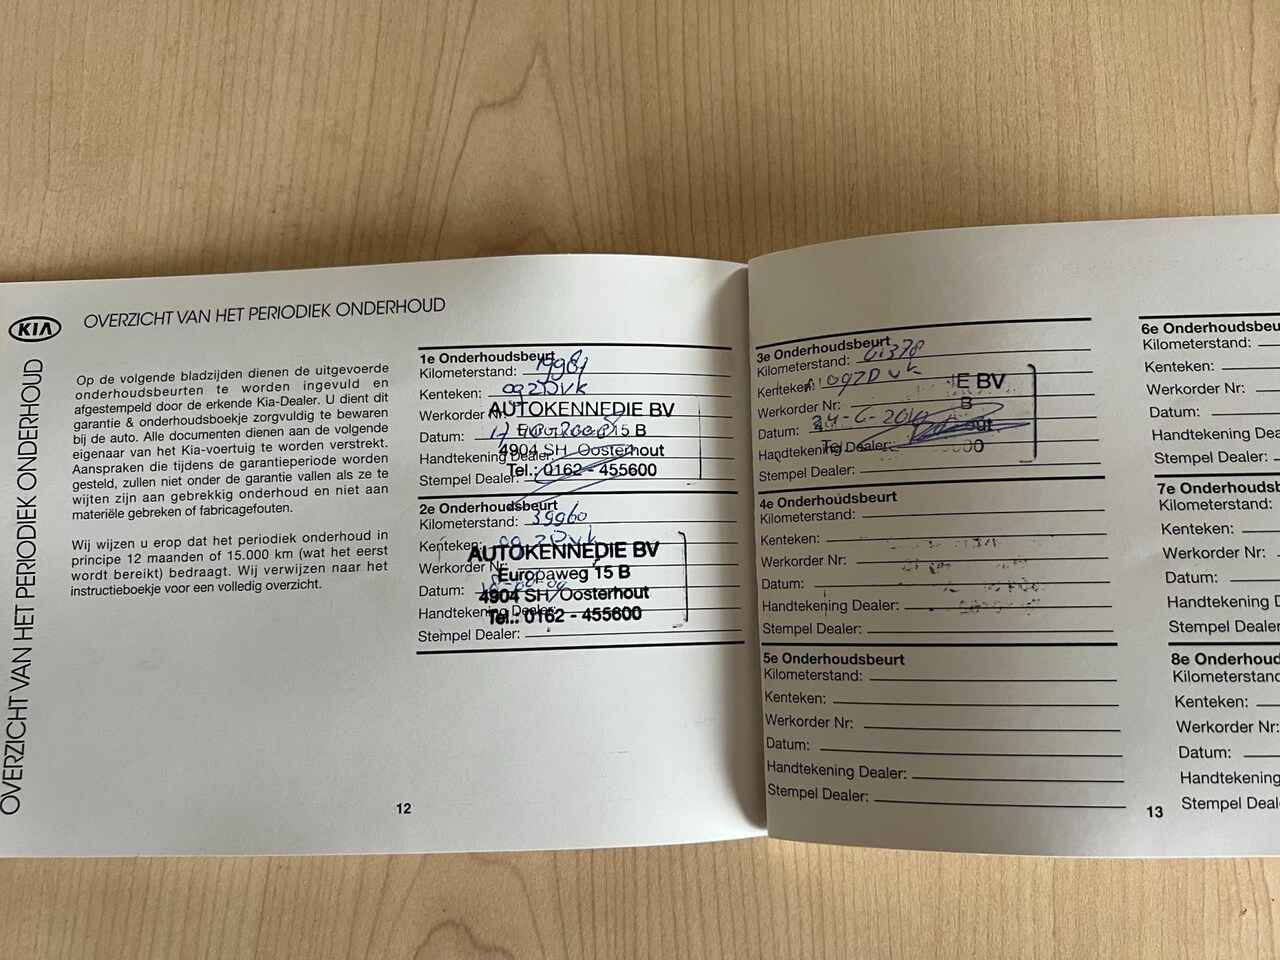 KIA
OVERZICHT VAN HET PERIODIEK ONDERHOUD
OVERZICHT VAN HET PERIODIEK ONDERHOUD
Op de volgende bladzijden dienen de uitgevoerde
onderhoudsbeurten te worden ingevuld en
afgestempeld door de erkende Kia-Dealer. U dient dit
garantie & onderhoudsboekje zorgvuldig te bewaren
bij de auto. Alle documenten dienen aan de volgende
eigenaar van het Kia-voertuig te worden verstrekt.
Aanspraken die tijdens de garantieperiode worden
gesteld, zullen niet onder de garantie vallen als ze te
wijten zijn aan gebrekkig onderhoud en niet aan
materiële gebreken of fabricagefouten.
Wij wijzen u erop dat het periodiek onderhoud in
principe 12 maanden of 15.000 km (wat het eerst
wordt bereikt) bedraagt. Wij verwijzen naar het
instructieboekje voor een volledig overzicht.
12
1e Onderhoudsbeurt
Kilometerstand: 19981
Kenteken: 09ZDVK
Werkorder Nr:
AUTOKENNEDIE BV
Datum:
Europaweg 15 B
4904 SH Oosterhout
Handtekening Dealer:
Tel.: 0162 - 455600
Stempel Dealer:
2e Onderhoudsbeurt
Kilometerstand: 39960
Kenteken: 09ZDVK
AUTOKENNEDIE BV
Werkorder Nr:
Europaweg 15 B
Datum:
4904 SH Oosterhout
Handtekening Dealer:
Tel.: 0162 - 455600
Stempel Dealer:
3e Onderhoudsbeurt
Kilometerstand: 61378
Kenteken: 09ZDVK
IE BV
Werkorder Nr:
B
Datum: 24-6-2010
out
Handtekening Dealer:
Tel
Stempel Dealer:
4e Onderhoudsbeurt
Kilometerstand:
Kenteken:
Werkorder Nr:
Datum:
Handtekening Dealer:
Stempel Dealer:
5e Onderhoudsbeurt
Kilometerstand:
Kenteken:
Werkorder Nr:
Datum:
Handtekening Dealer:
Stempel Dealer:
6e Onderhoudsbeu
Kilometerstand:
Kenteken:
Werkorder Nr:
Datum:
Handtekening Dea
Stempel Dealer:
7e Onderhoudsb
Kilometerstand:
Kenteken:
Werkorder Nr:
Datum:
Handtekening D
Stempel Dealer
8e Onderhoud
Kilometerstand
Kenteken:
Werkorder Nr:
Datum:
Handtekening
Stempel Deal
13